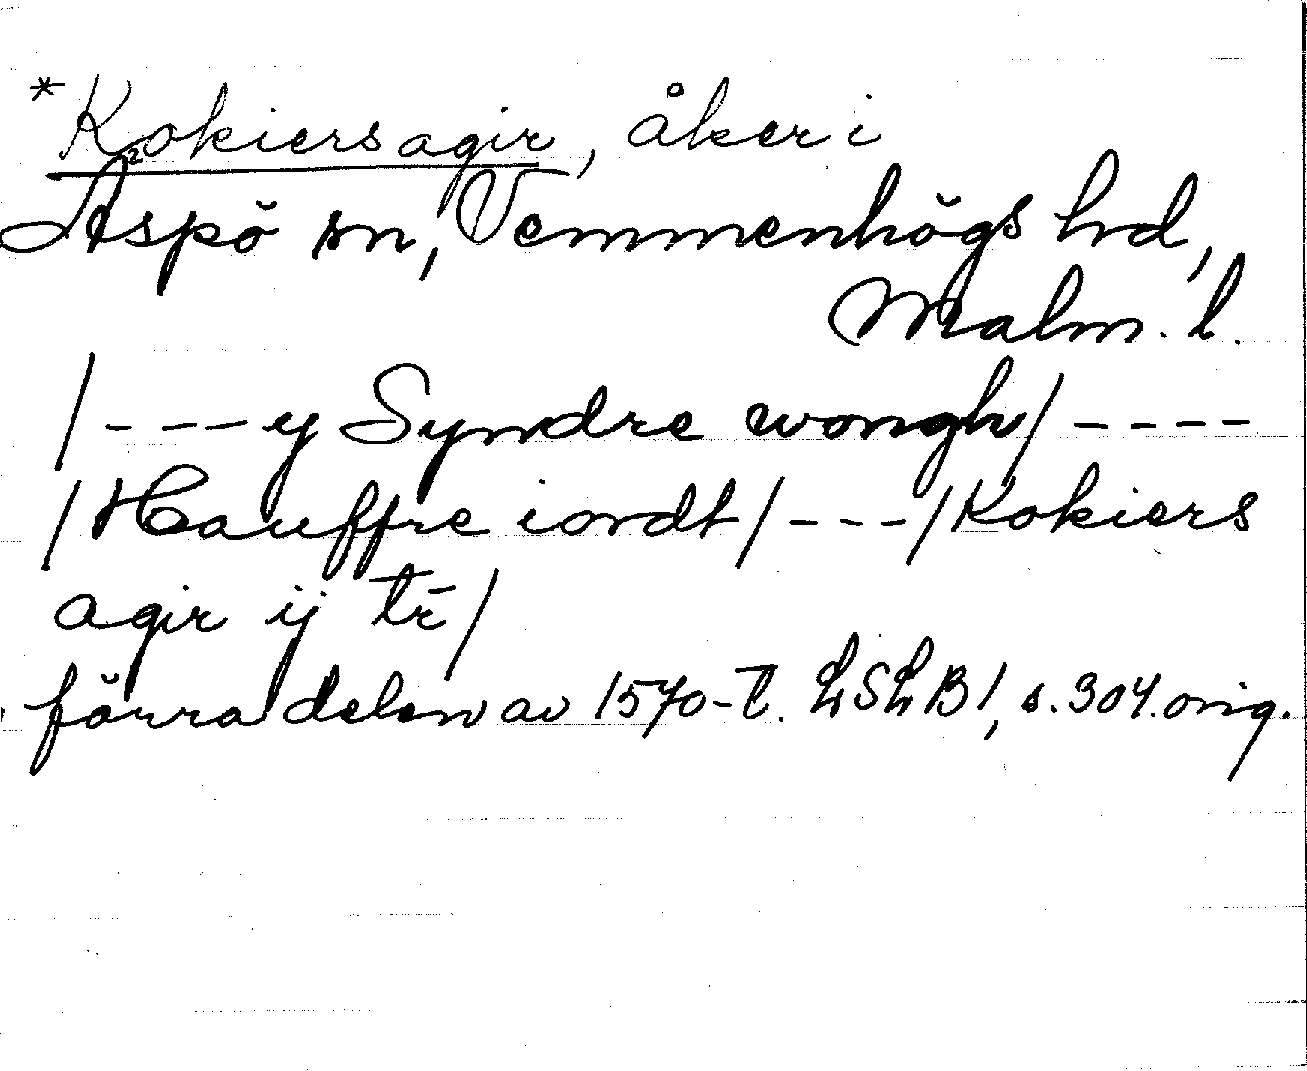 *Kokiersagir, åker i
Äspö sn, Vemmenhögs hrd,
Malm. l.
/----y Syndre wongh/----
/Hauffre iordt/---/Kokiers
agir ij tr̄/
förra delen av 1570-t. LSLB1, s. 304. orig.